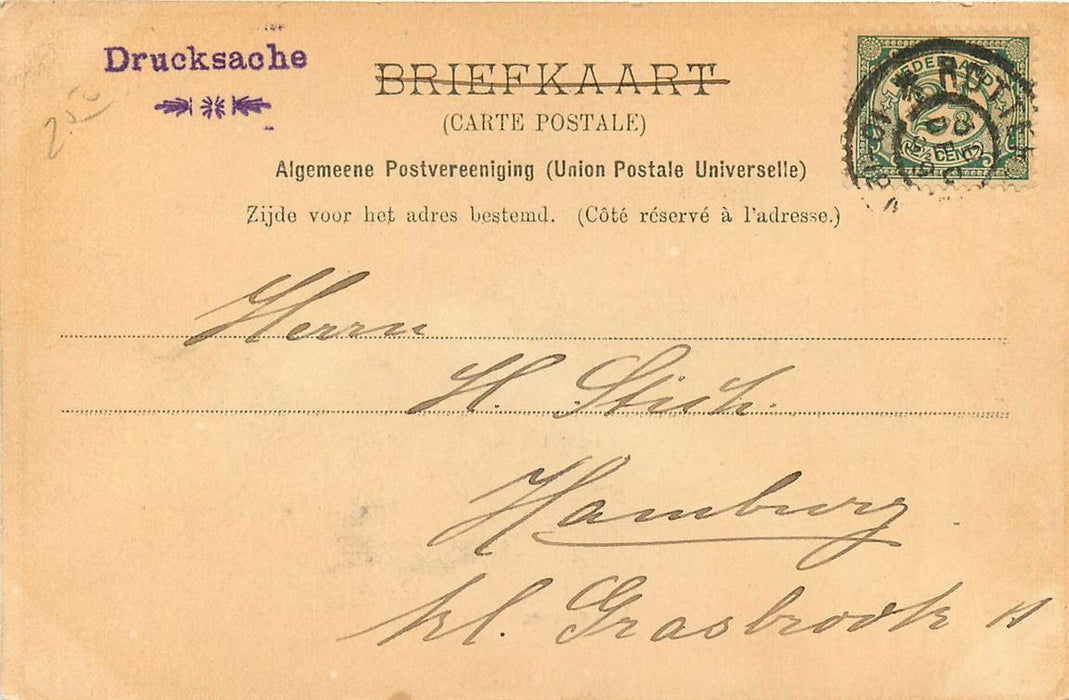 Drucksache
BRIEFKAART
(CARTE POSTALE)
Algemeene Postvereeniging (Union Postale Universelle)
Zijde voor het adres bestemd. (Côté réservé à l'adresse.)
NEDERLAND
CENT
Herrn
H. Stich.
Hamburg
kl. Grasbrook